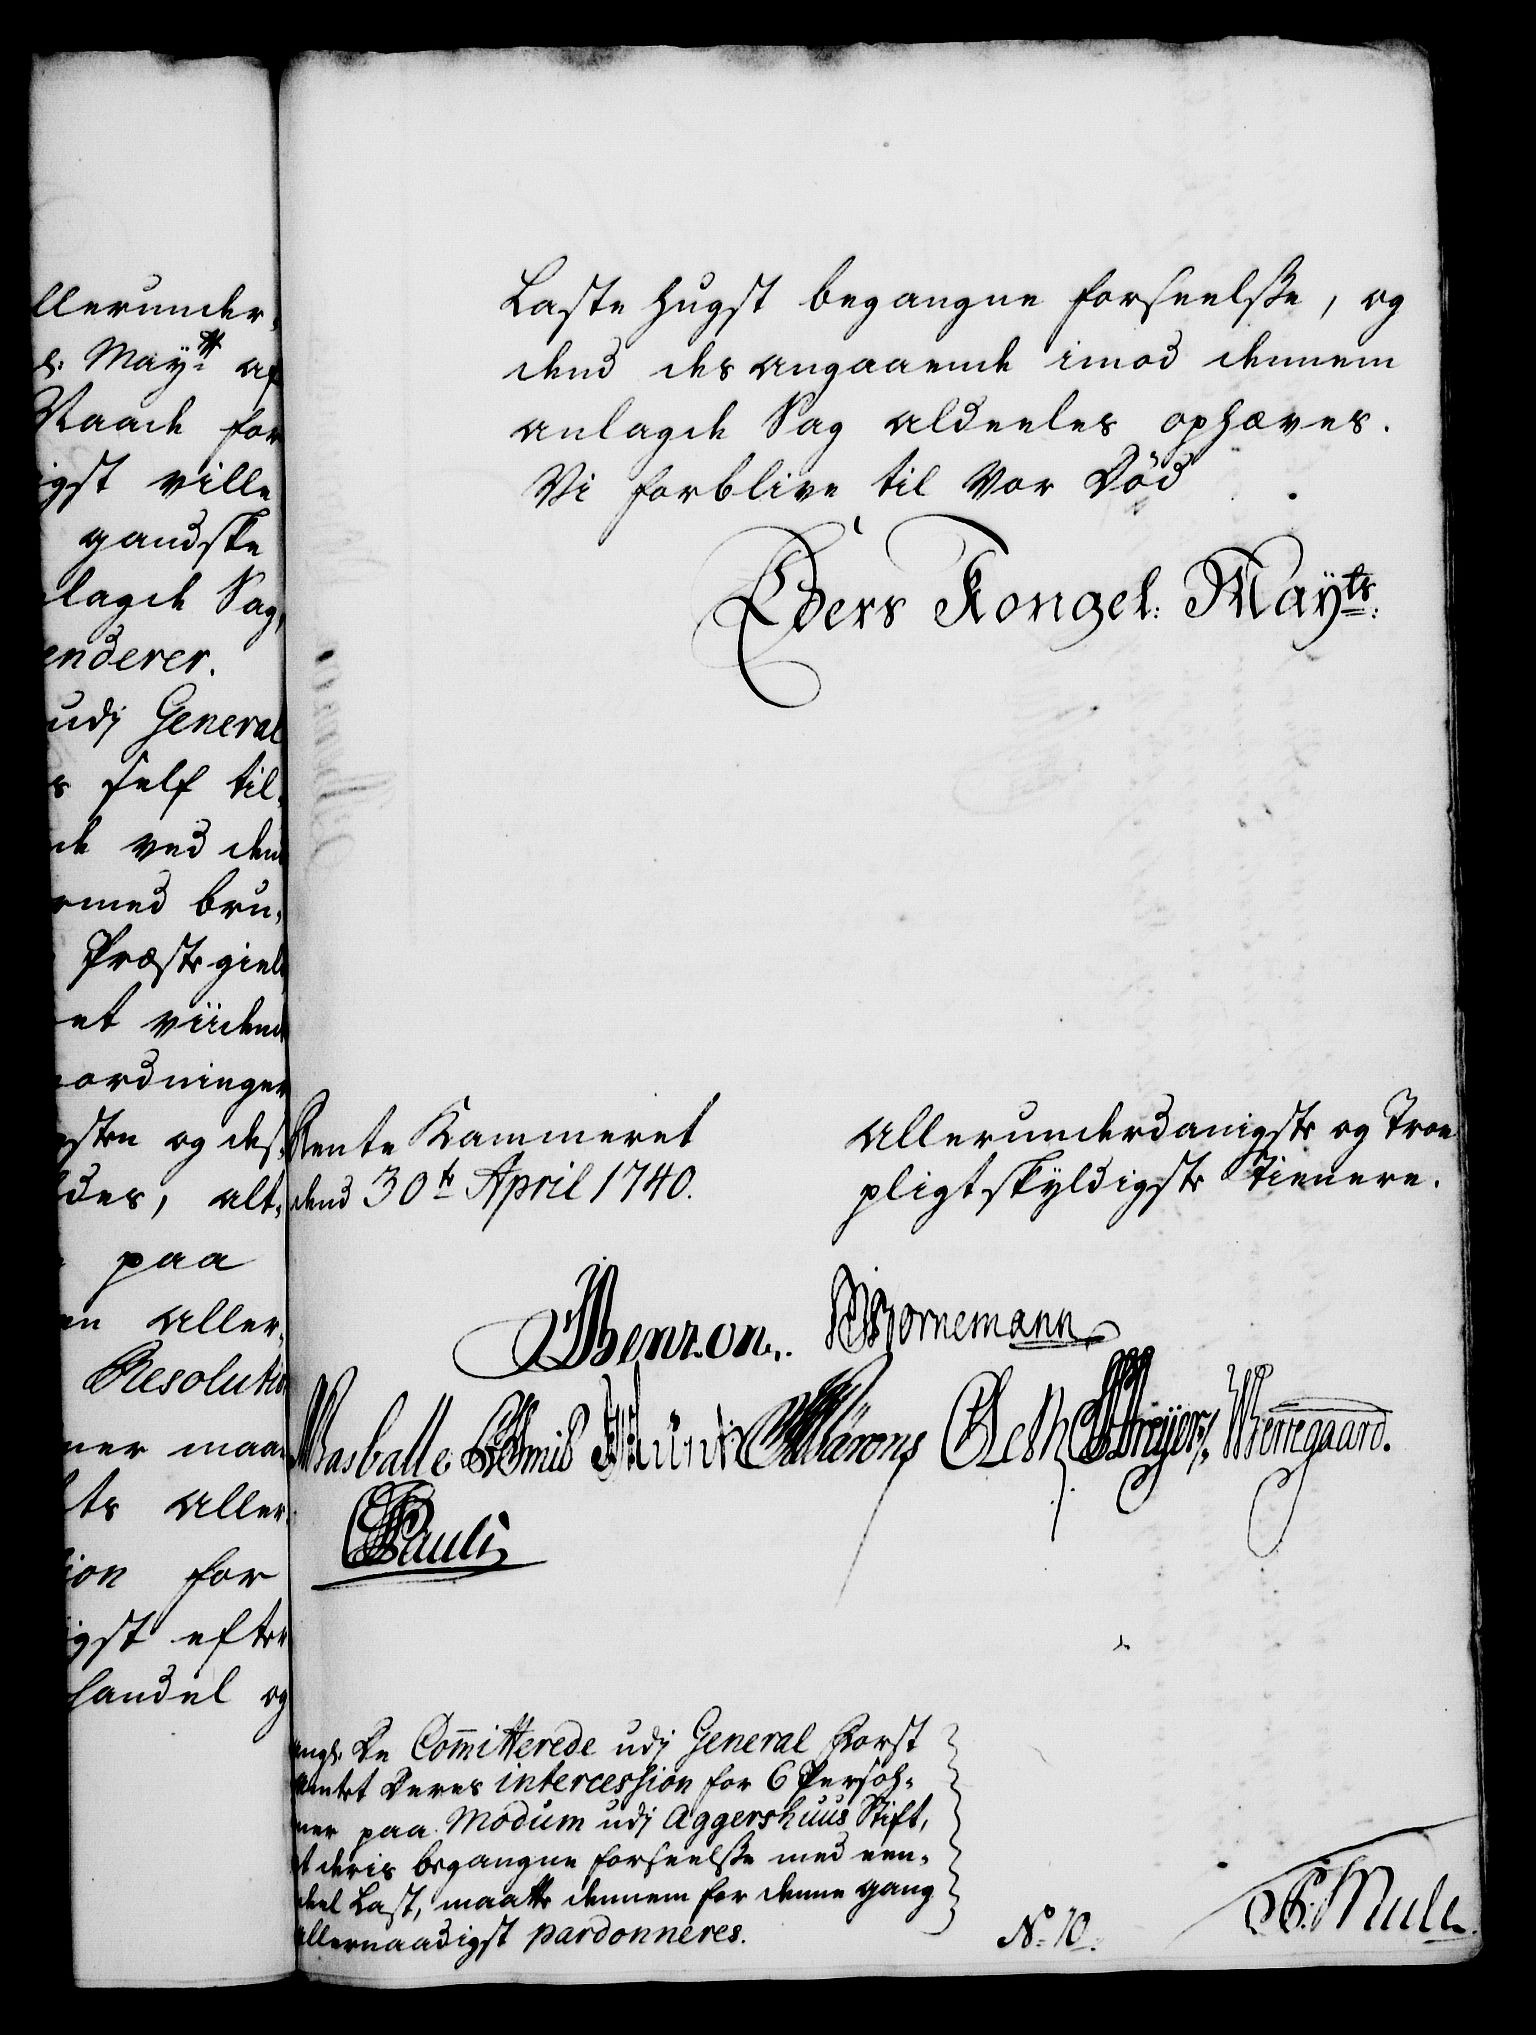 llerunder-
s: Mayts af
Naade for
igst ville
gandske
lagde Sag,
enderer.
udj General
s self til-
de ved den
rmed bru-
Præstegield
et viidend
ordninger
sten og des-
des, alt-
paa
en aller-
Resolution
ner maa
ts aller-
ion for
igst efter
handel og
Laste Hugst begangne forseelse, og
dend des angaaende imod dennem
anlagde Sag aldeeles ophæves.
Vi forblive til vor Död
Eders Kongel: Mayts:
Rente Kammeret
dend 30te April 1740.
Allerunderdanigste og Troe
pligtskyldigste Tienere.
Benzon. Bornemann
Basballe Smid Münch Mörons Oeth Dreyer Wernegaard.
Pauli
angl: De Committerede udj General Forst
Amtet Deres intercession for 6 Persoh-
ner paa Modum udj Aggershuus Stift,
at deris begangne forseelse med een-
deel Last, maatte dennem for denne gang
allernaadigst pardonneres.
No 10.
Mule